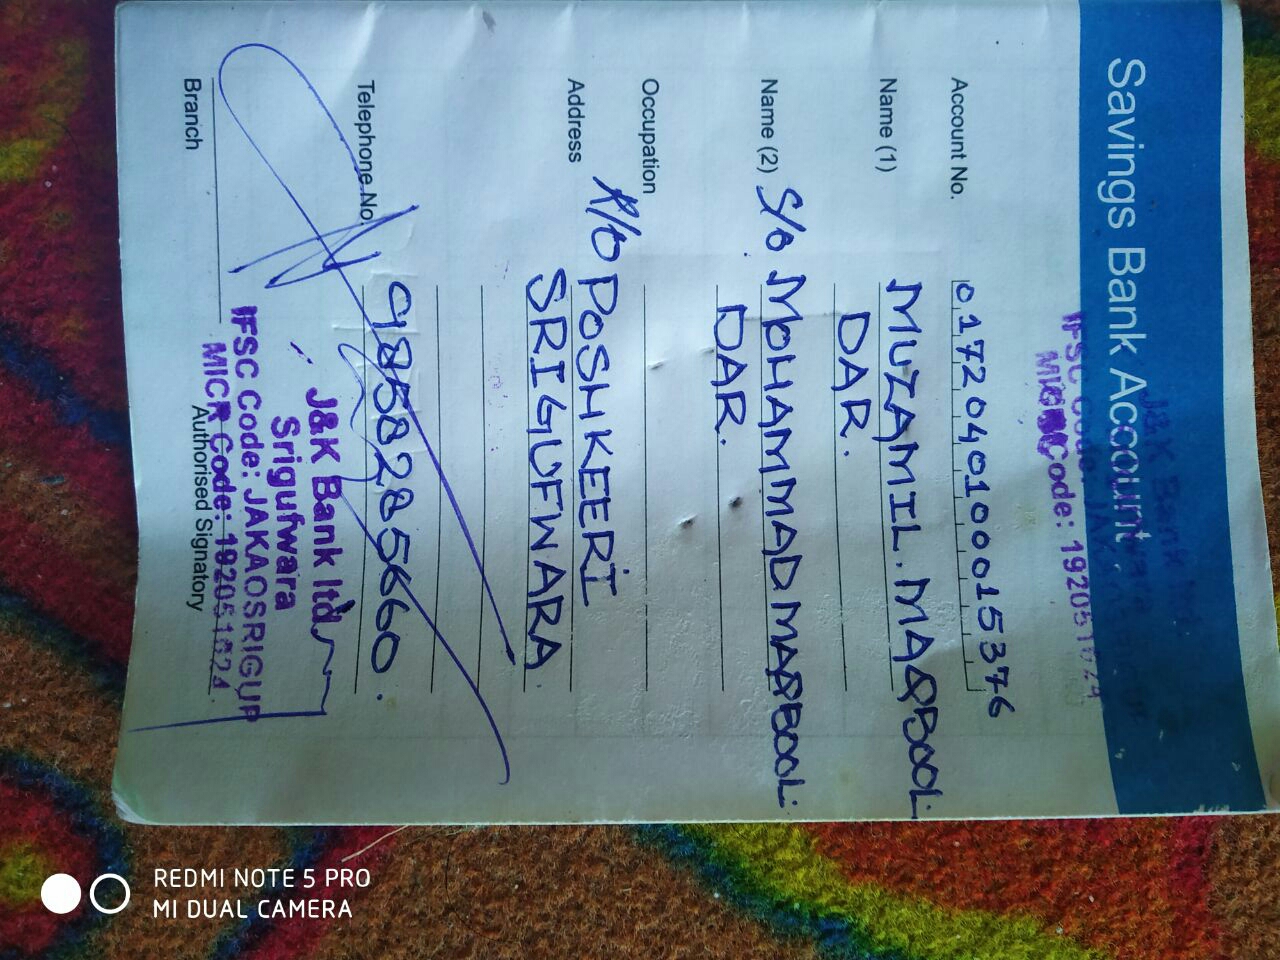 Savings Bank Account
J&K Bank ltd
IFSC Code: JAK
MICR Code: 192051024
Account No. 0172040100015376
Name (1) MUZAMIL. MAQBOOL
DAR.
Name (2) S/o. MOHAMMAD MAQBOOL
DAR.
Occupation
Address R/O POSHKEERI
SRIGUFWARA
Telephone No. 9858285660.
J&K Bank ltd
Srigufwara
IFSC Code: JAKAOSRIGUP
MICR Code: 192051024
Branch Authorised Signatory
REDMI NOTE 5 PRO
MI DUAL CAMERA